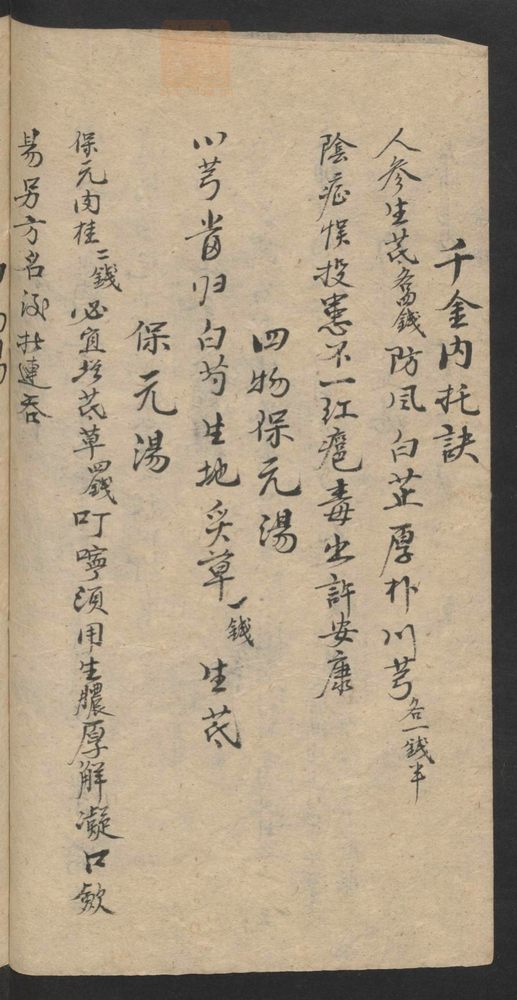 千金內托訣
人參生芪各兩錢防风白芷厚朴川芎各一錢半
陰症悮投患不一紅癍毒出許安康
四物保元湯
川芎當归白芍生地炙草一錢生芪
保元湯
保元肉桂二錢必宜芪草四錢叮嚀須用生膿厚解凝口歛
易另方名連吞